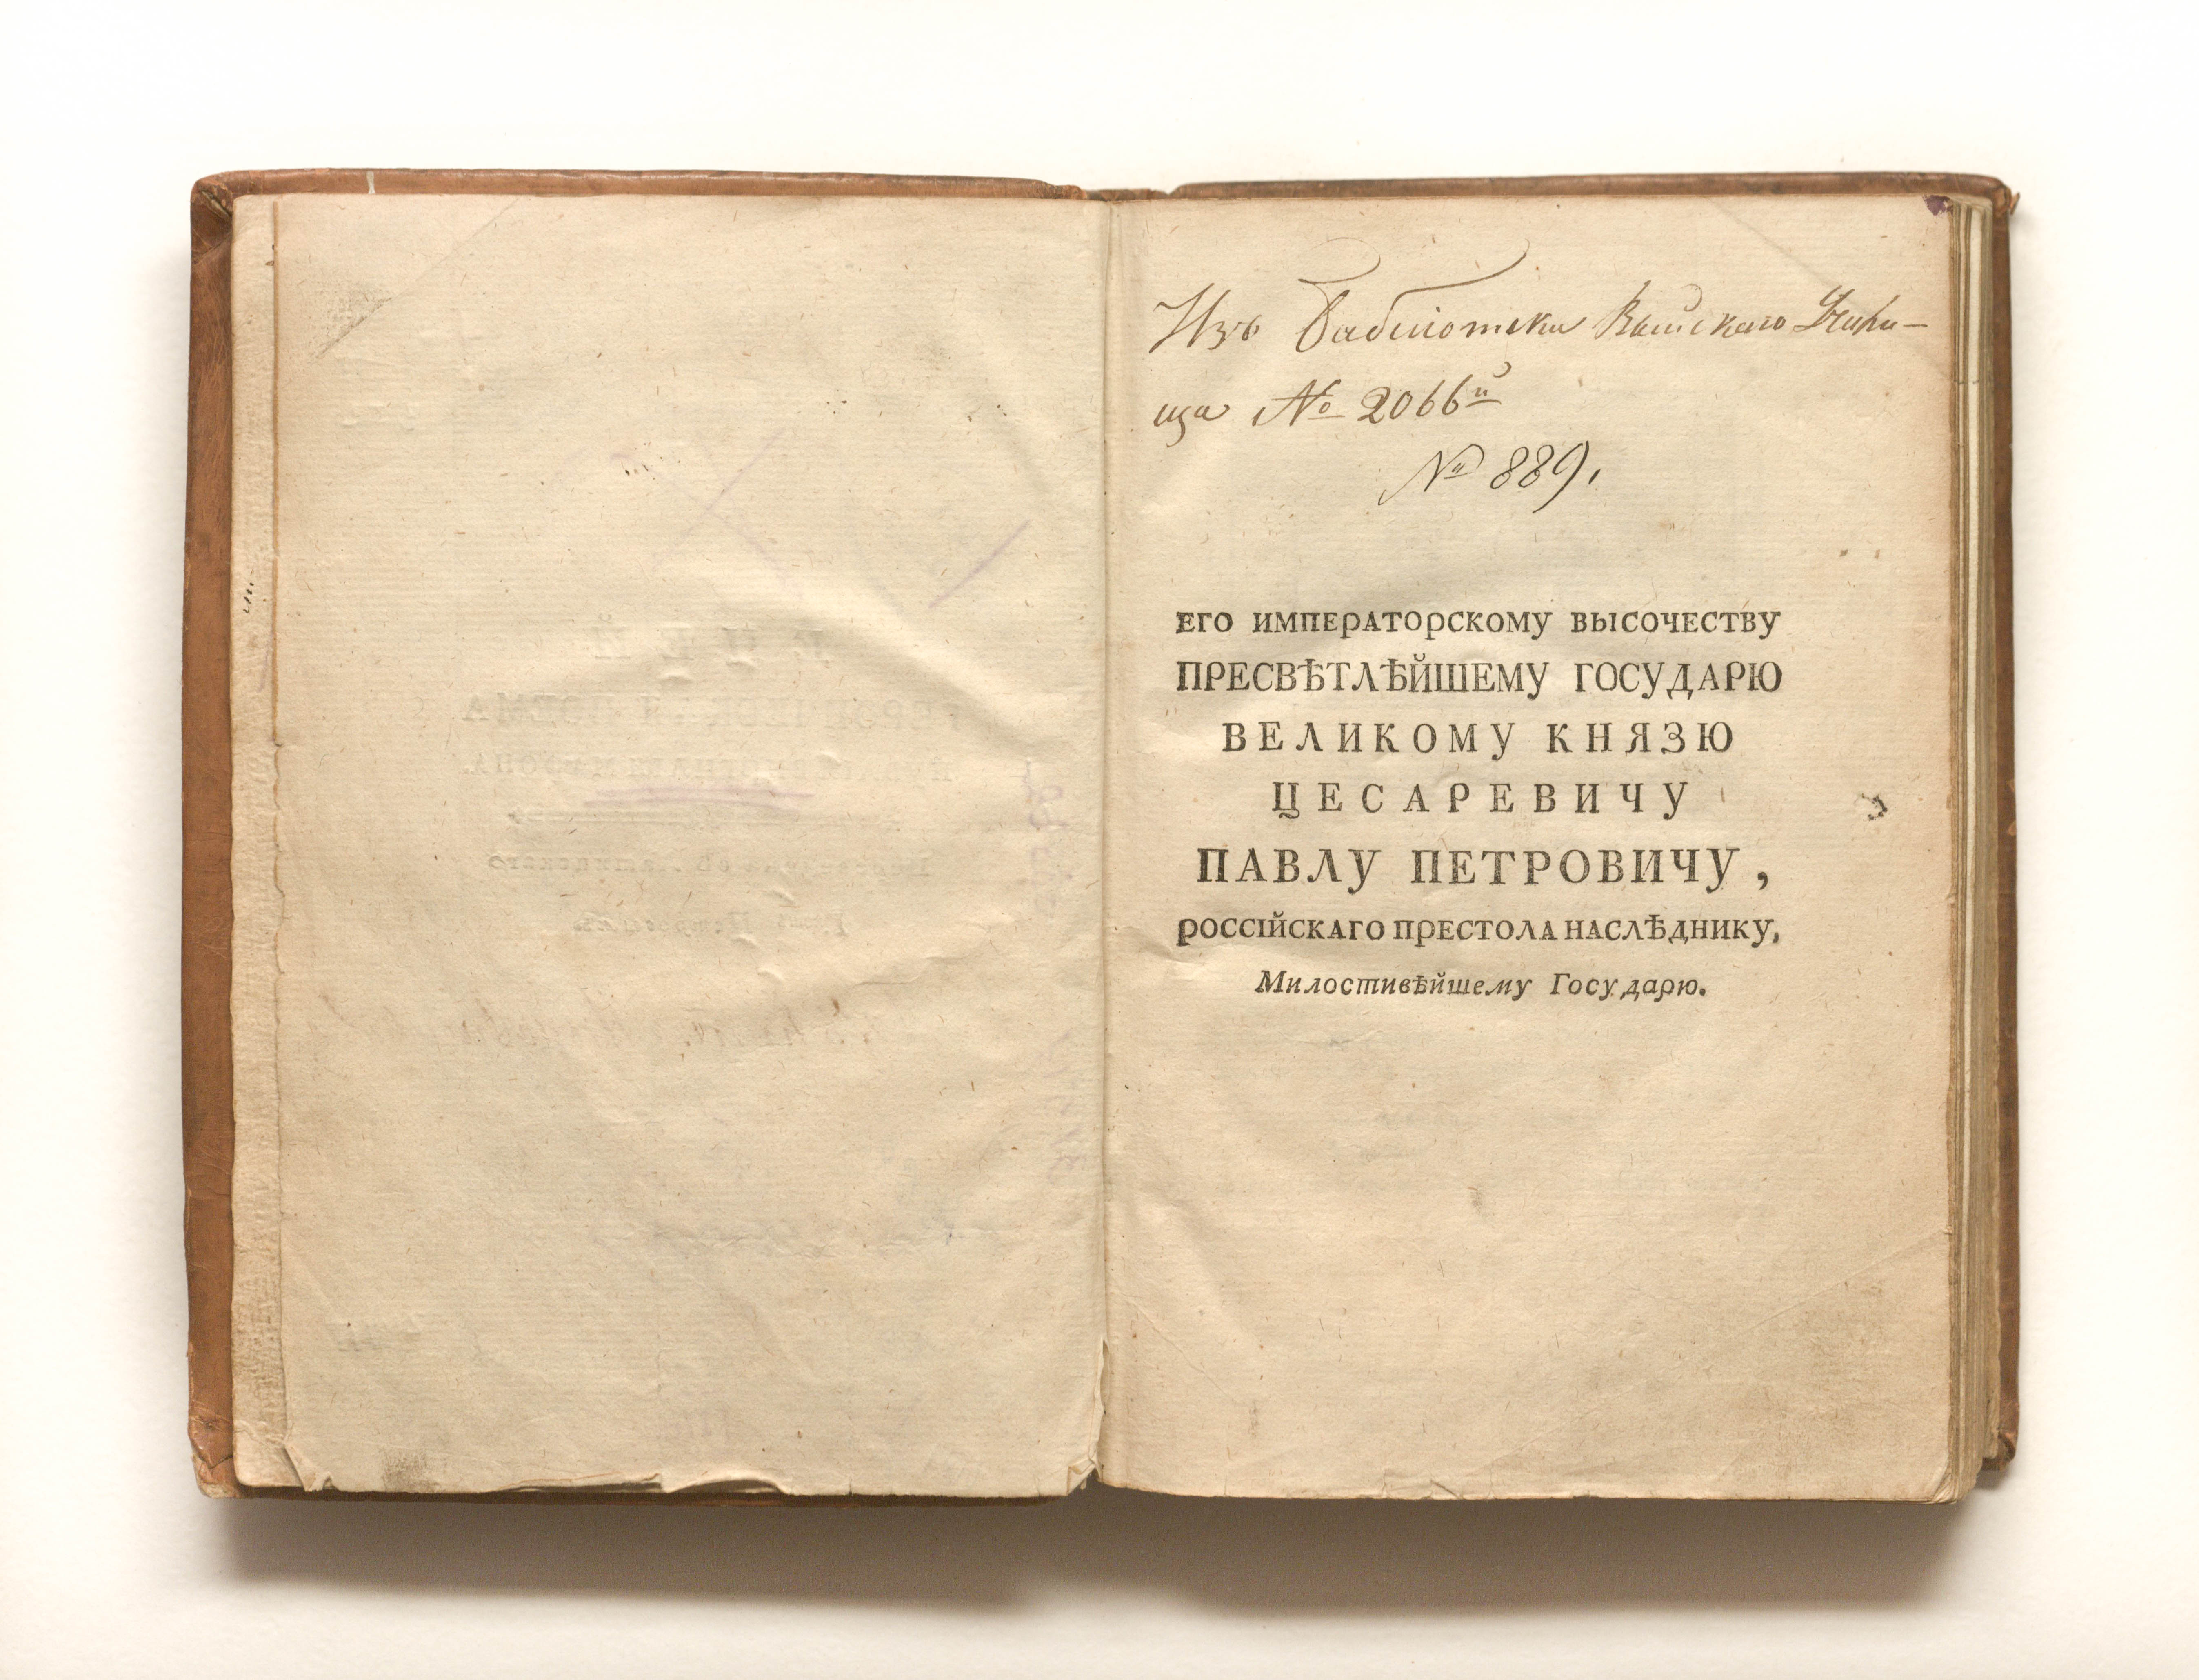 Изъ Библіотеки Выйскаго Учили-
ща № 2066й
№ 889.
ЕГО ИМПЕРАТОРСКОМУ ВЫСОЧЕСТВУ
ПРЕСВѢТЛѢЙШЕМУ ГОСУДАРЮ
ВЕЛИКОМУ КНЯЗЮ
ЦЕСАРЕВИЧУ
ПАВЛУ ПЕТРОВИЧУ,
РОССІЙСКАГО ПРЕСТОЛА НАСЛѢДНИКУ,
Милостивѣйшему Государю.